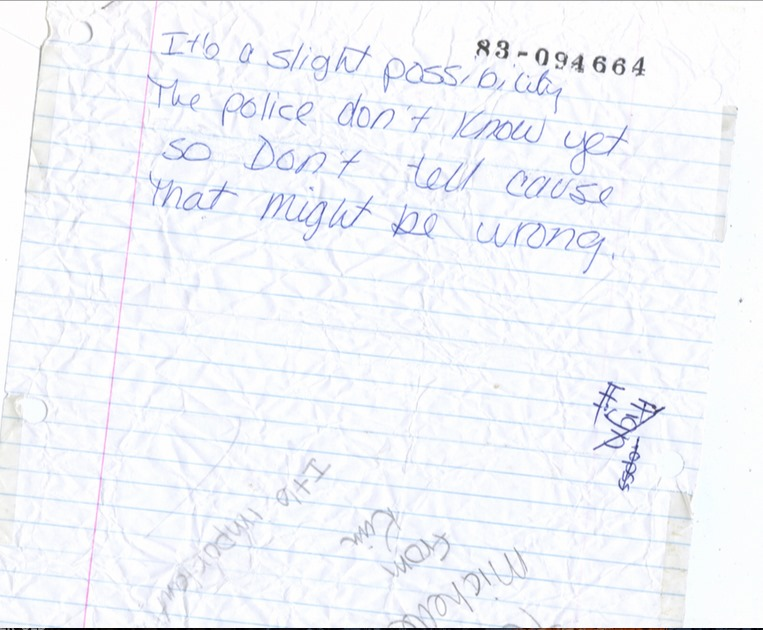 83-094664
It's a slight possibility
The police don't Know yet
so Don't tell cause
that might be wrong.
High
It's important
Kim
From
Michelle